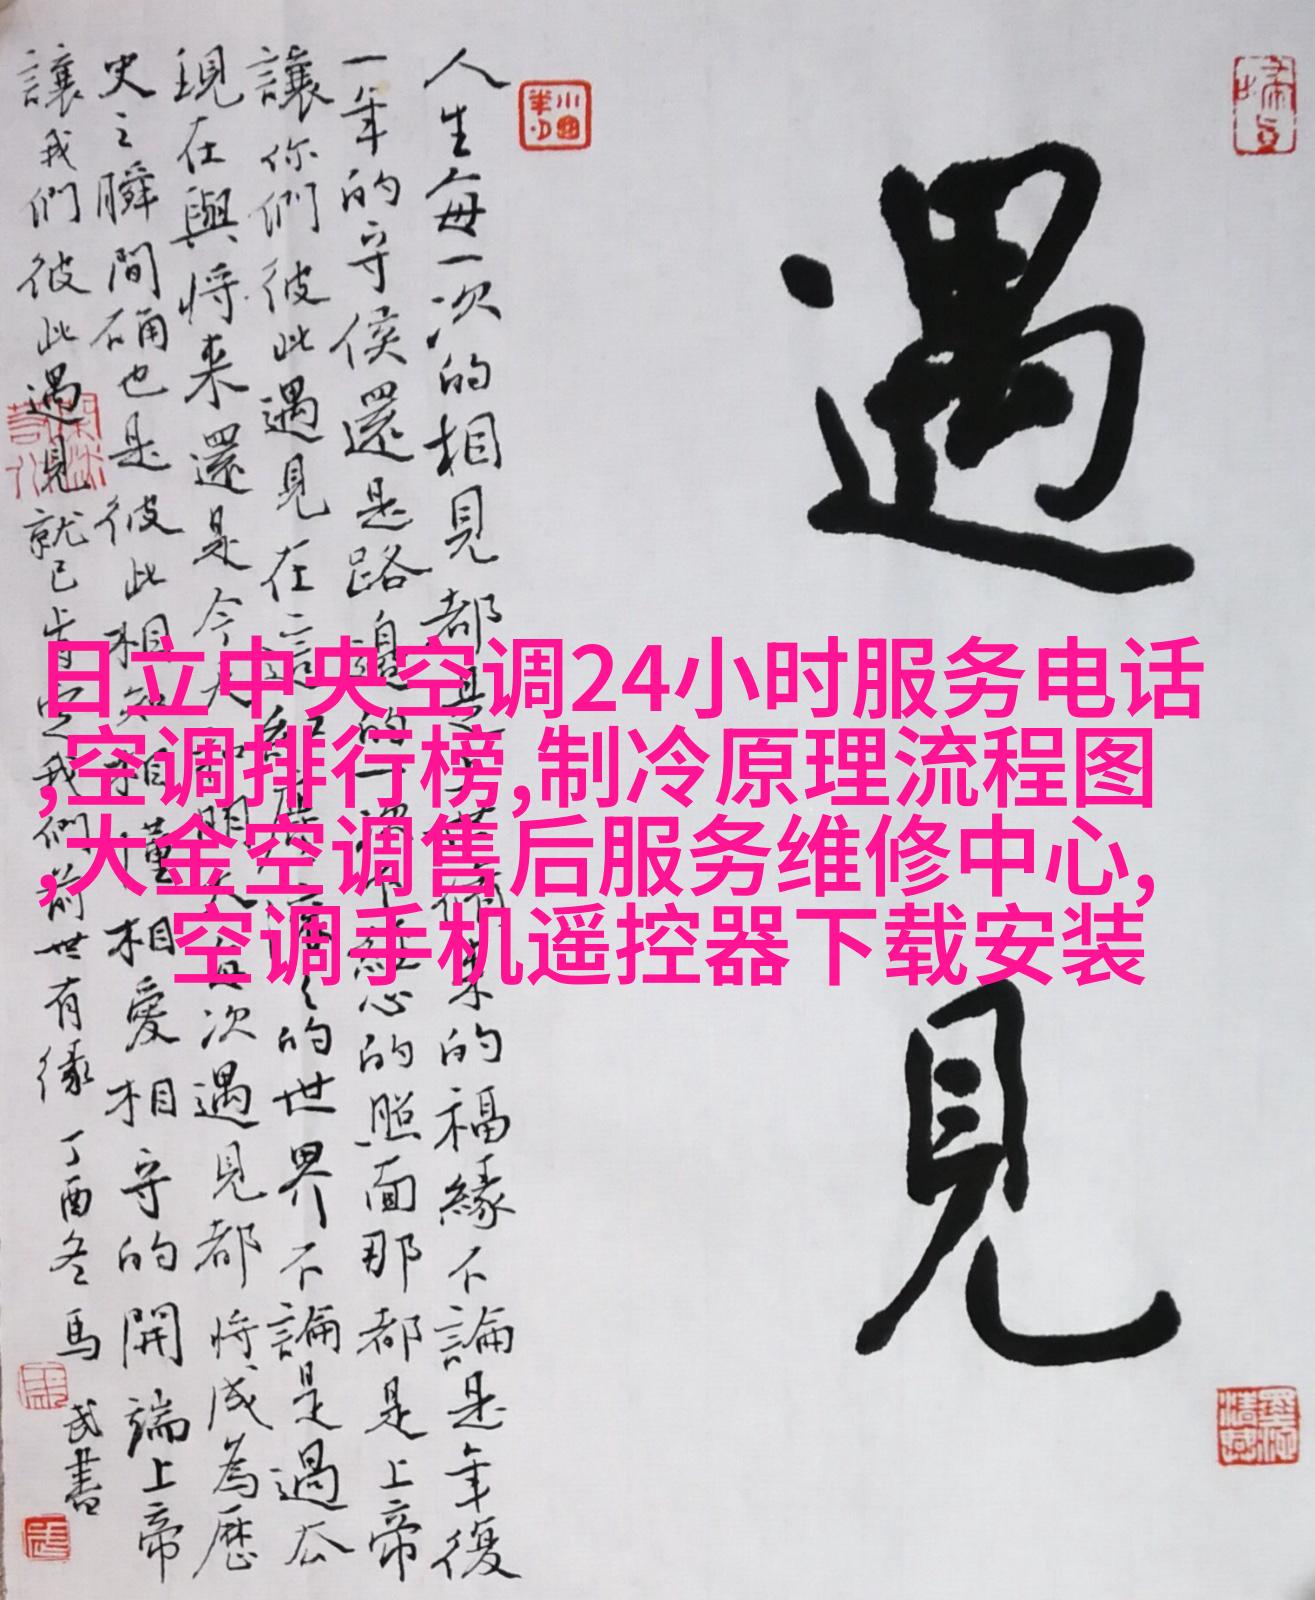 遇見
人生每一次的相見都是
的福緣不論是年復
一年的守侯還是路邊的一
的照面那都是上帝
讓你們彼此遇見在
的世界不論是過去
現在與將来還是今天
明天每次遇見都將成為歷
史之瞬間确也是彼此相
相懂相愛相守的開端上帝
讓我們彼此遇見就已肯定我們前世有缘
丁酉冬馬武書
日立中央空调24小时服务电话
,空调排行榜,制冷原理流程图
,大金空调售后服务维修中心,
空调手机遥控器下载安装